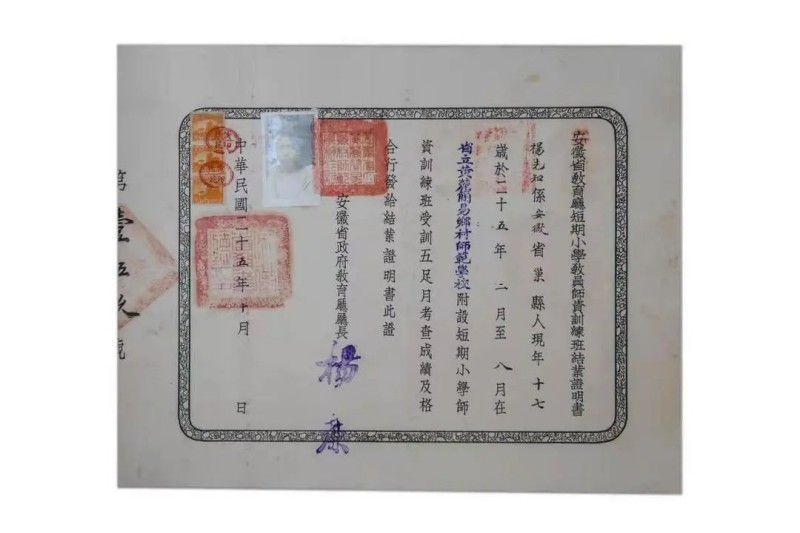 安徽省教育廳短期小學教員師資訓練班結業證明書
楊先知係安徽省巢縣人現年十七
歲於二十五年二月至八月在
省立黃麓簡易鄉村師範學校附設短期小學師
資訓練班受訓五足月考查成績及格
合行發給結業證明書此證
安徽省政府教育廳廳長
楊廉
中華民國二十五年十月 日
第壹伍玖號